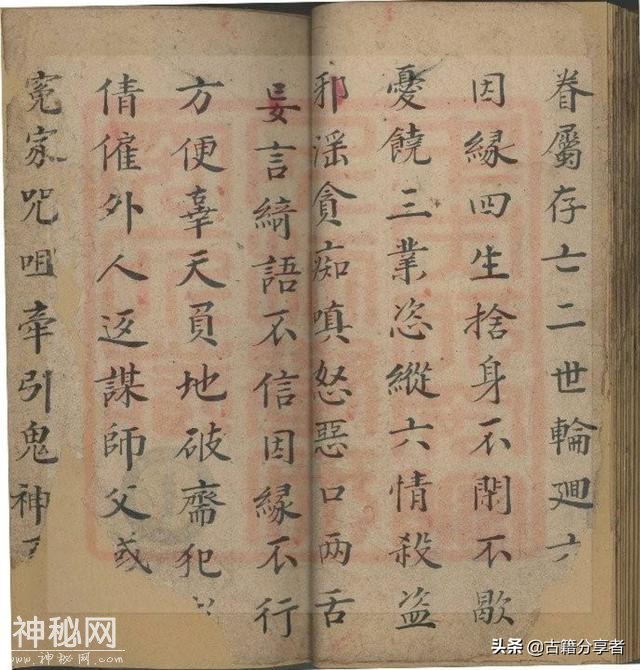 眷屬存亡二世輪廻六
因縁四生捨身不閑不歇
憂饒三業恣縱六情殺盗
邪淫貪痴嗔怒惡口两舌
妄言綺語不信因縁不行
方便辜天負地破齋犯
倩僱外人返謀師父或
寃家咒咀牽引鬼神
神秘网
www.shenmw.com
头条 @古籍分享者